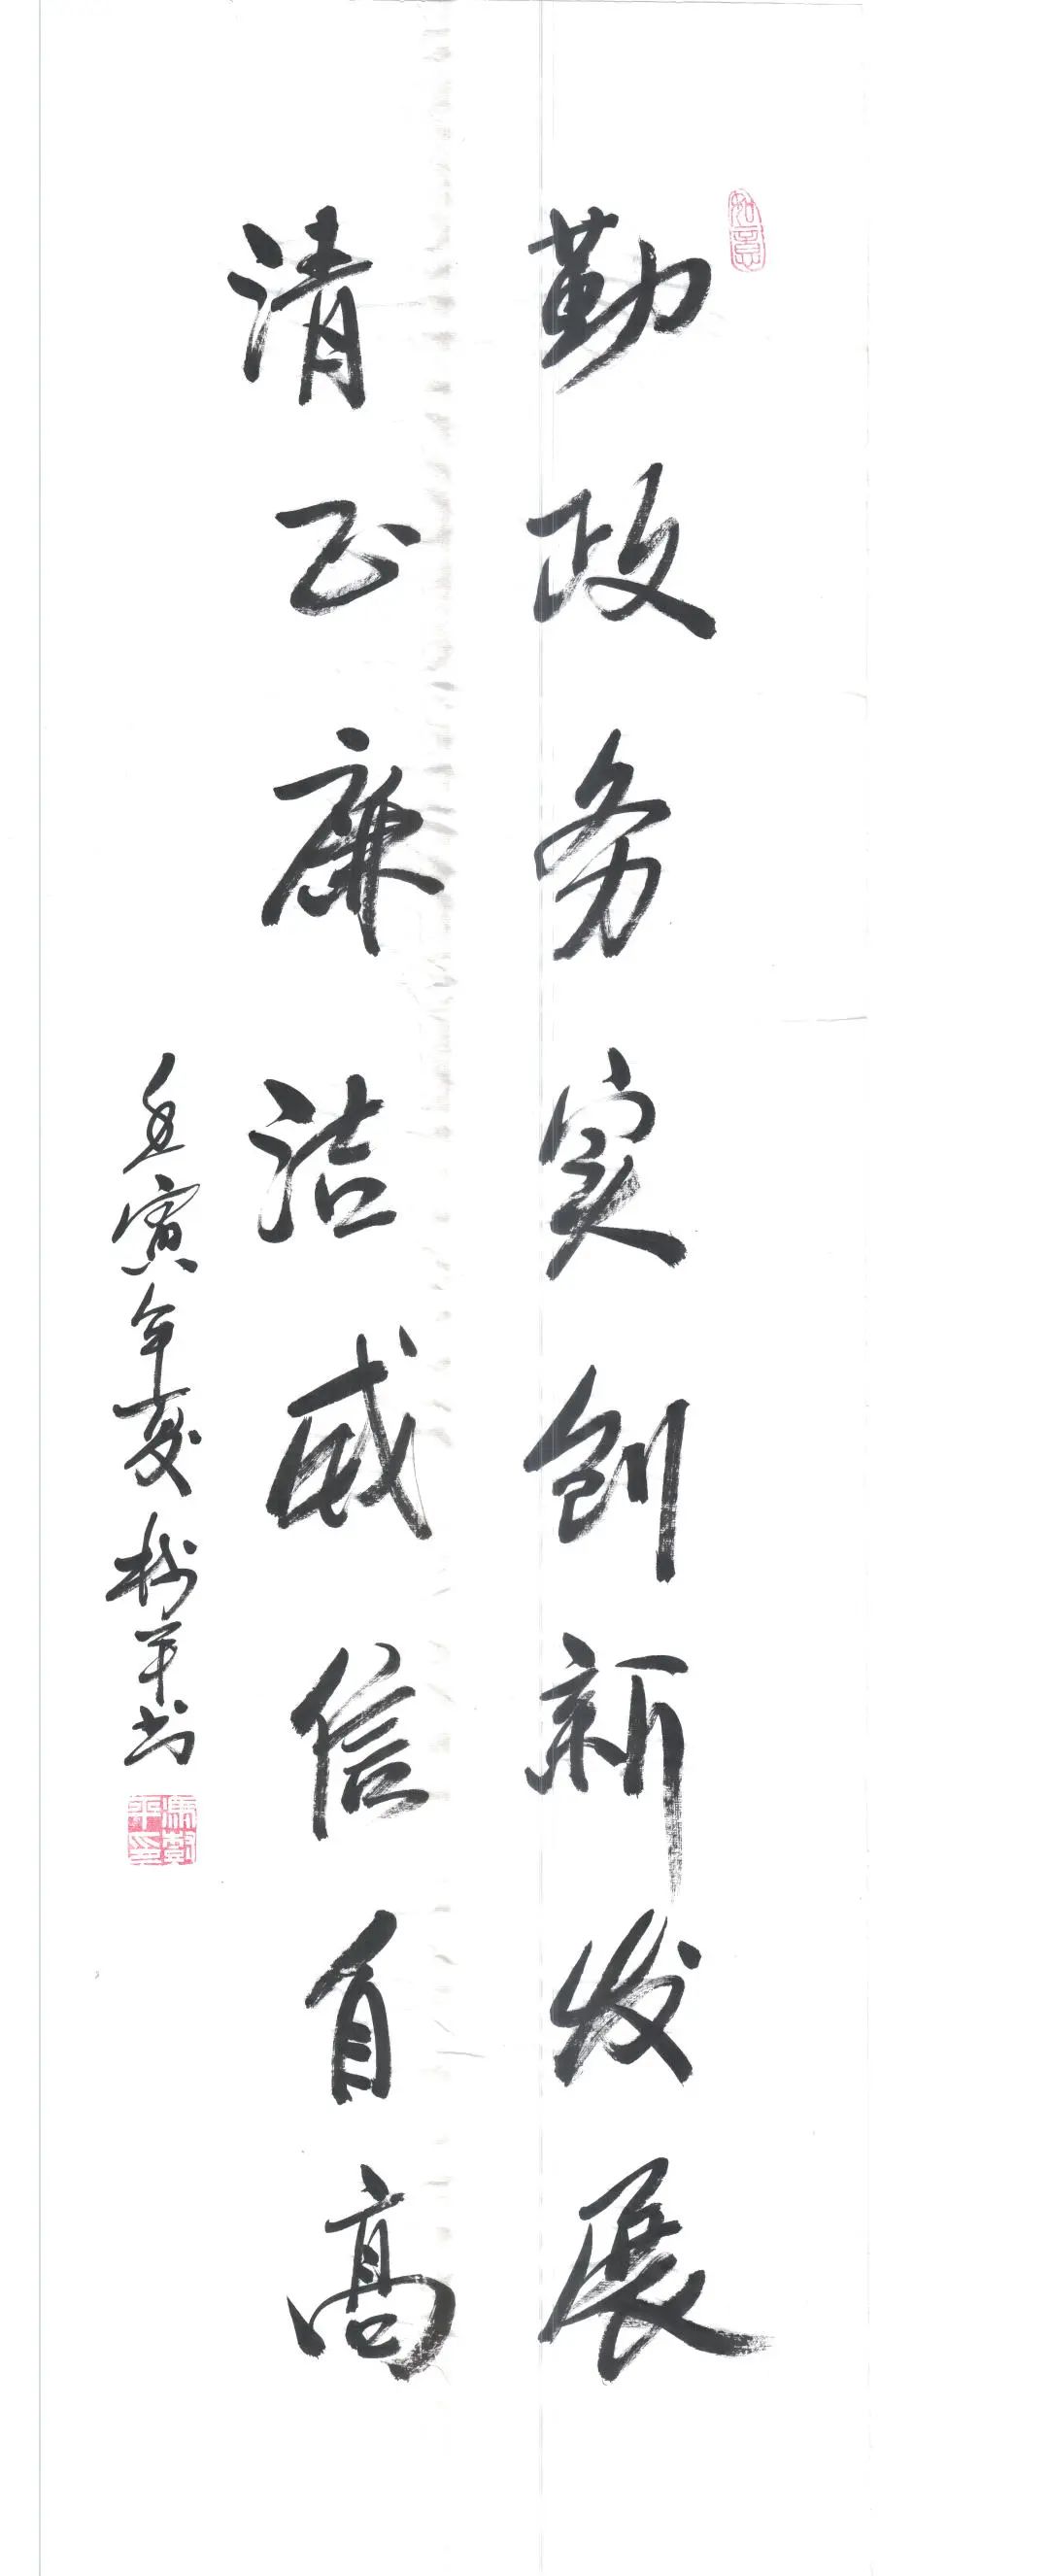 如意
勤政务实创新发展
清正廉洁威信自高
壬寅年夏树平书